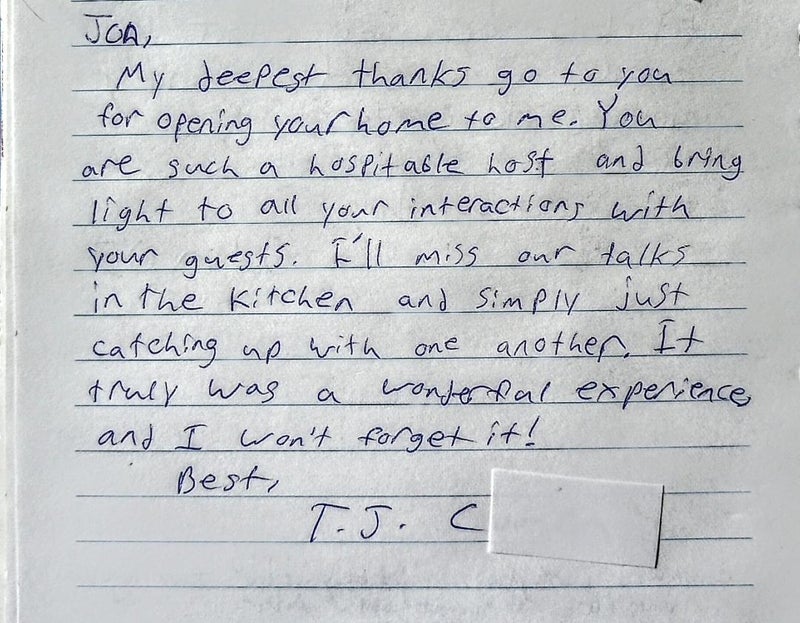 Jon,
My deepest thanks go to you
for opening your home to me. You
are such a hospitable host and bring
light to all your interactions with
your guests. I'll miss our talks
in the kitchen and simply just
catching up with one another. It
truly was a wonderful experience,
and I won't forget it!
Best,
T.J. C